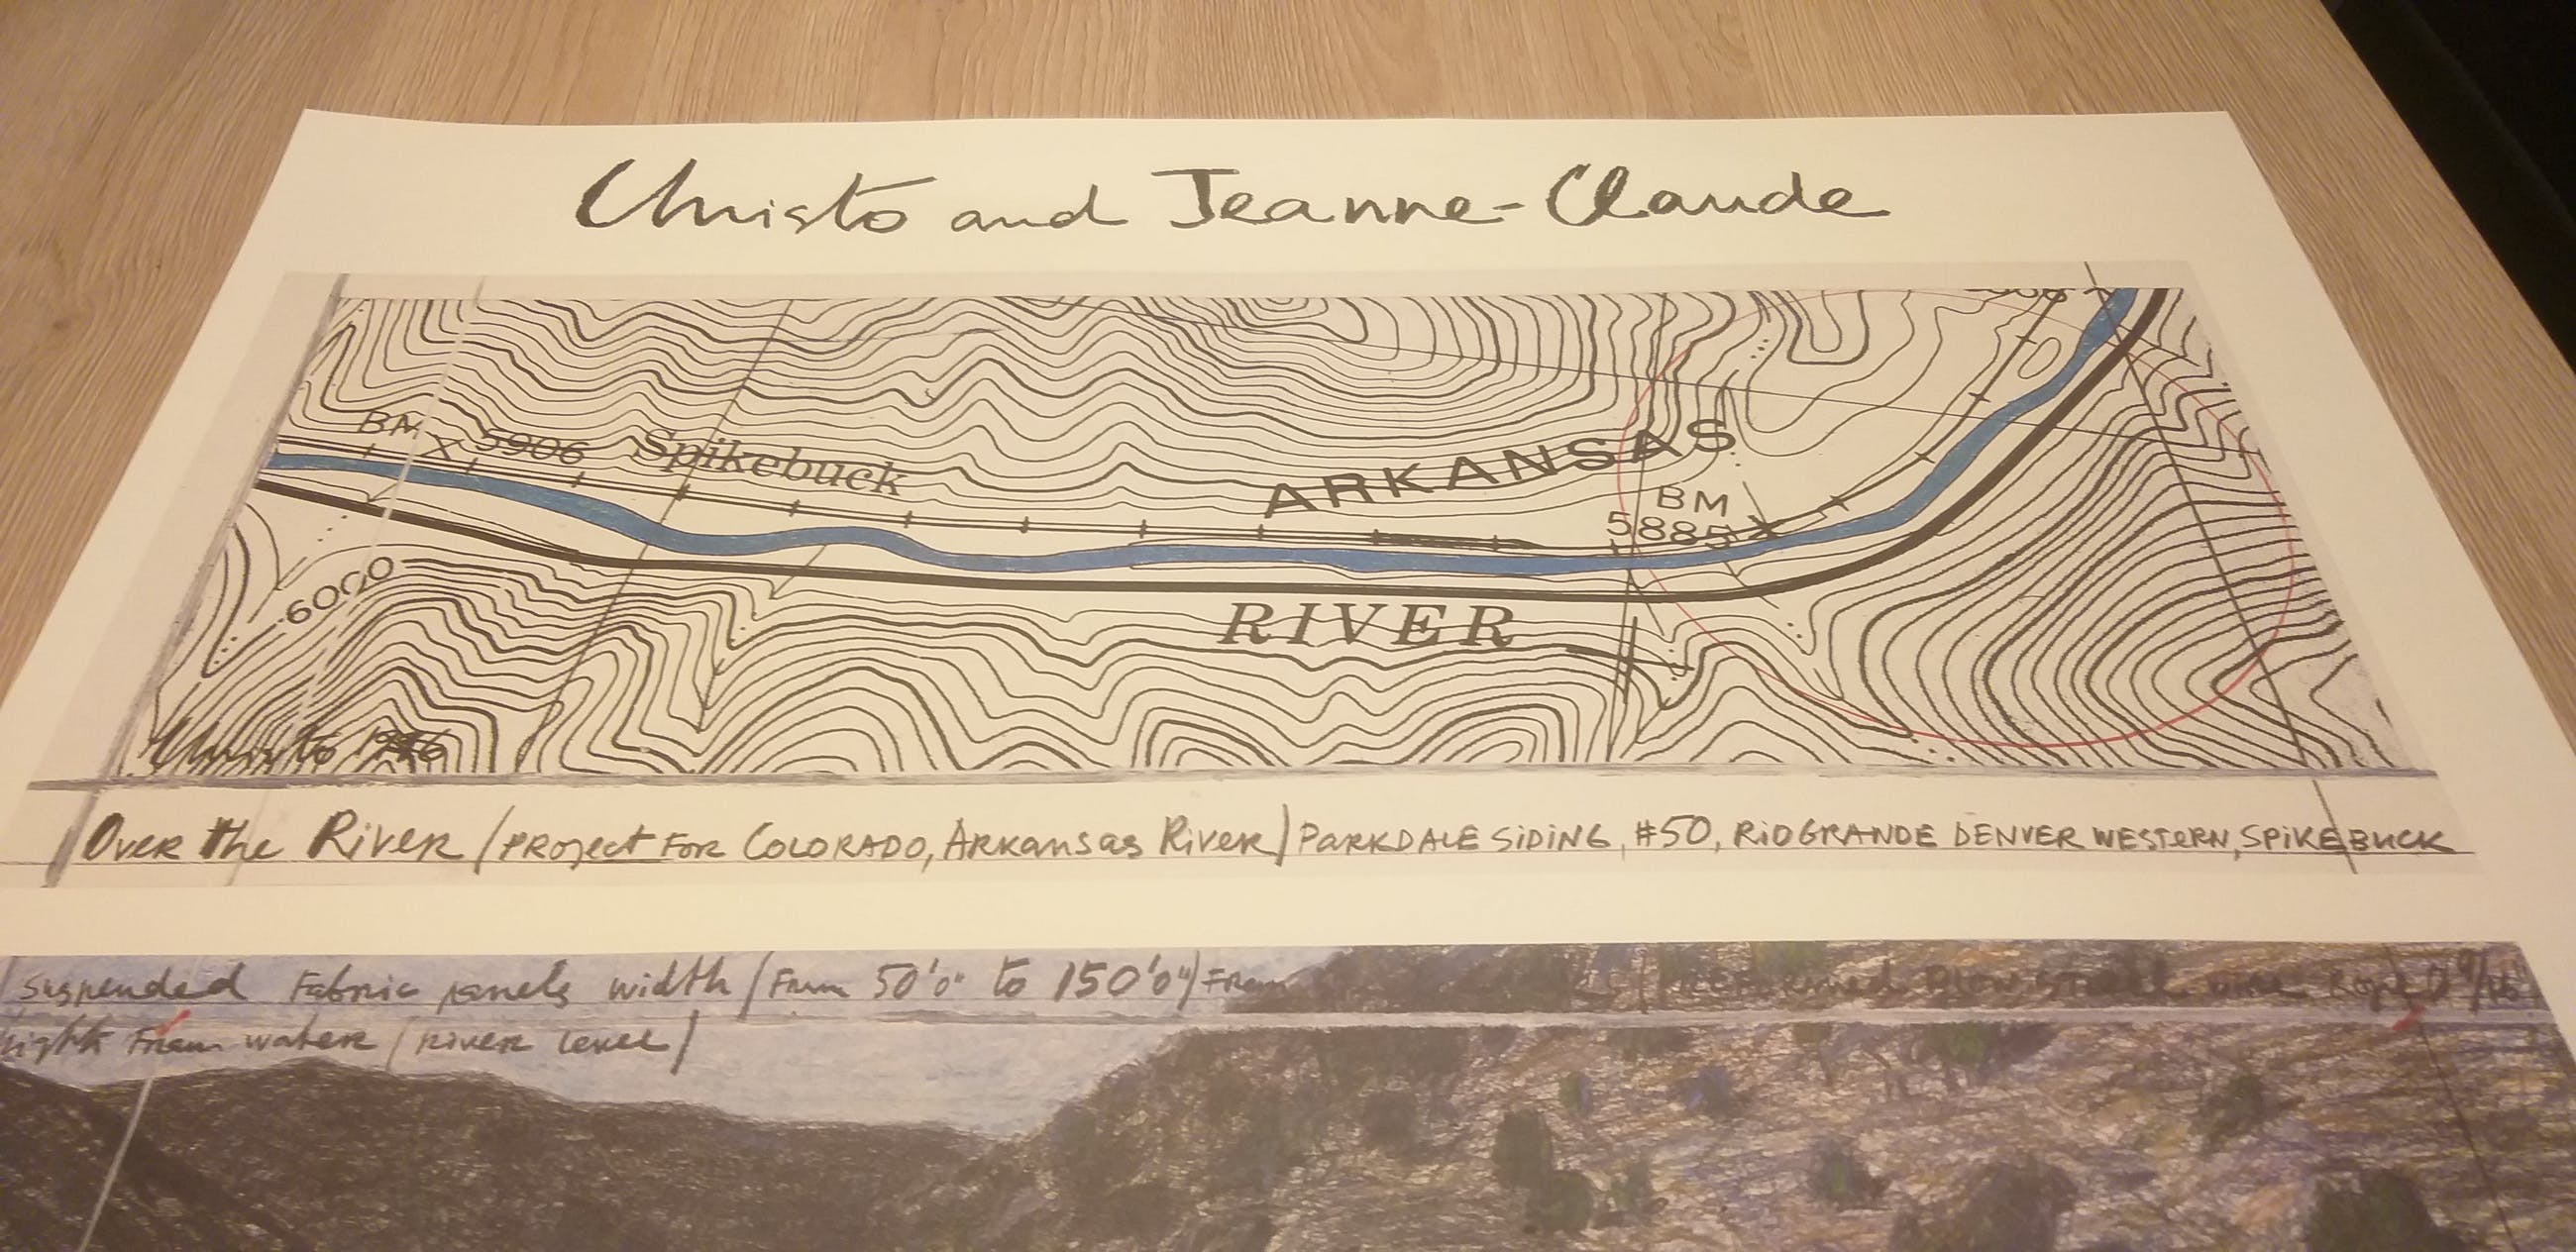 Christo and Jeanne-Claude
BM X 5906 Spikebuck
ARKANSAS
BM
5885 X
RIVER
6000
Christo 1996
Over the River / PROJECT FOR COLORADO, ARKANSAS RIVER / PARKDALE SIDING, #50, RIO GRANDE DENVER WESTERN, SPIKEBUCK
Suspended Fabric panels width (From 50'0" to 150'0") From
From water (river level)